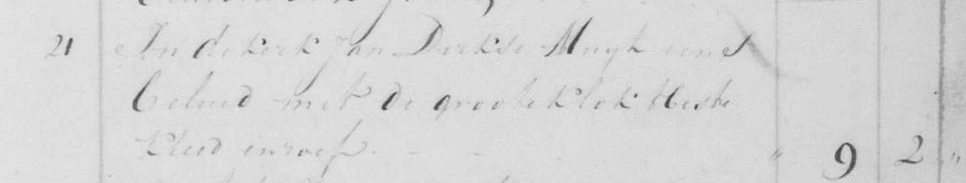 21 In de kerk Jan Dirkse Muyk eens
Geluid met de groote klok t beste
kleed en roef - - - " 9 2 "